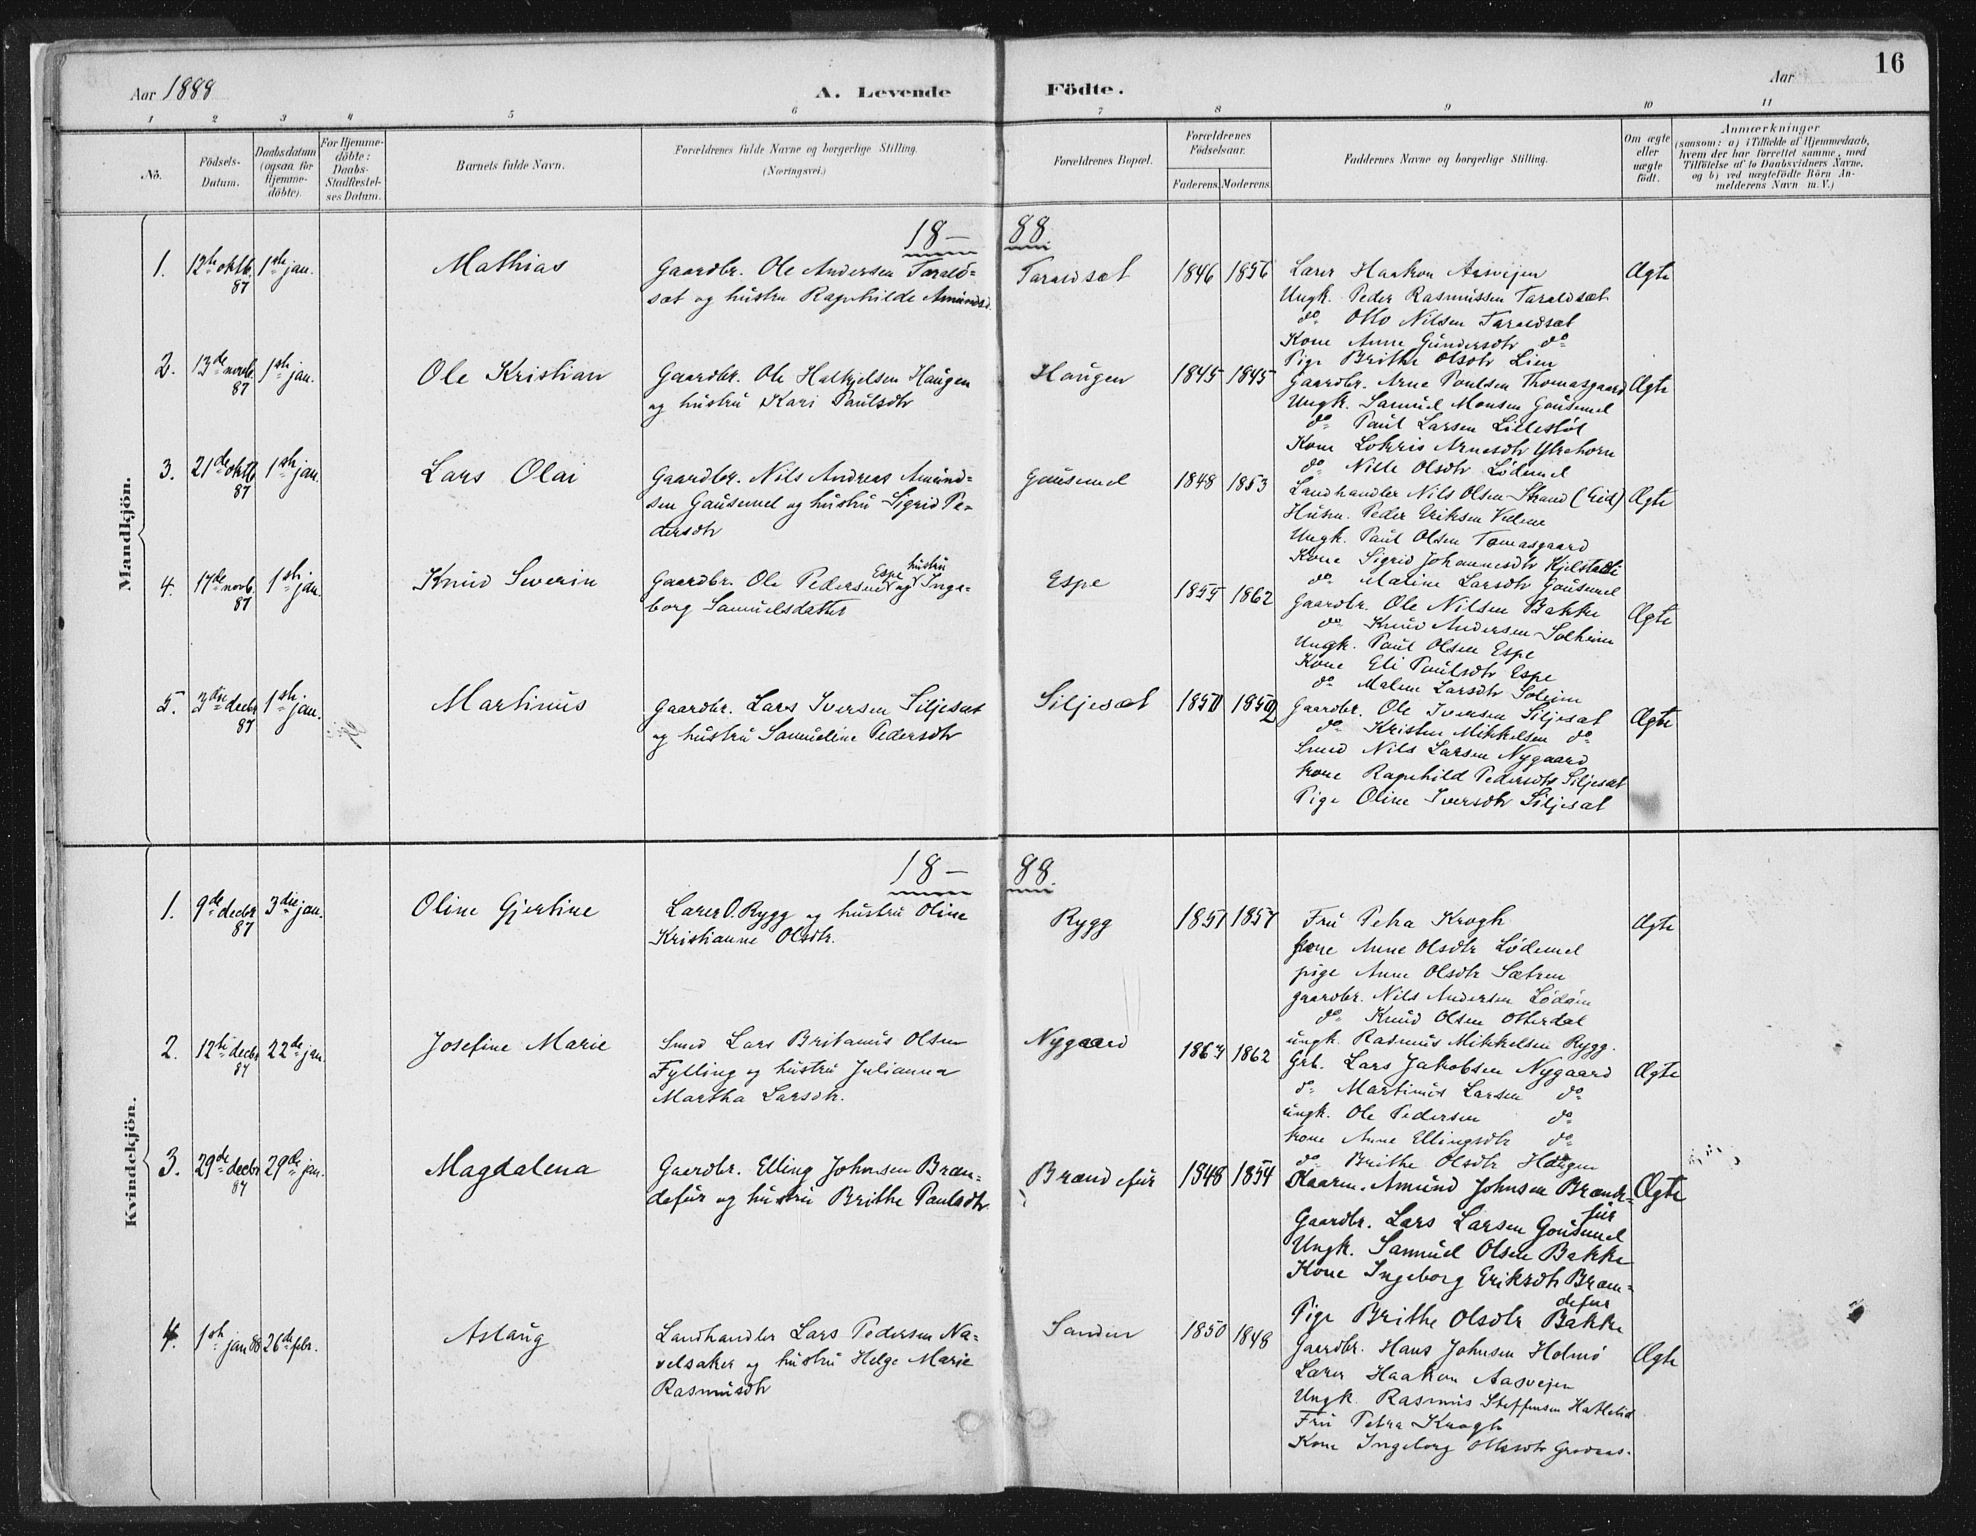 16
Aar 1888 A. Levende Födte. Aar
1 2 3 4 5 6 7 8 9 10 11
No.
Födsels-Datum.
Daabsdatum (ogsaa for Hjemme-döbte).
For Hjemme-döbte: Daabs-Stadfæstel-ses Datum.
Barnets fulde Navn.
Forældrenes fulde Navne og borgerlige Stilling. (Næringsvei.)
Forældrenes Bopæl.
Forældrenes Födselsaar.
Faderens. Moderens.
Faddernes Navne og borgerlige Stilling.
Om ægte eller uægte födt.
Anmærkninger
(saasom: a) i Tilfælde af Hjemmedaab, hvem der har forrettet samme, med Tilföielse af to Daabsvidners Navne, og b) ved uægtefödte Börn An-melderens Navn m. V.)
Mandkjön.
18 — 88
1. 12te oktb. 87 1ste jan. Mathias
Gaardbr. Ole Andersen Tarald=
sæt og hustru Ragnhilde Amundsd.
Taraldsæt 1846 1856
Lærer Haakon Aasvejen
Ungk. Peder Rasmussen Taraldsæt
do Otto Nilsen Taraldsæt
Kone Anne Gundersdtr do
Pige Brithe Olsdtr Lien
Ægte
2. 13de novb. 87 1ste jan. Ole Kristian
Gaardbr. Ole Halkjelsen Haugen
og hustru Kari Paulsdtr
Haugen 1845 1845
Gaardbr. Arne Poulsen Thomasgaard
Ungk. Samuel Monsen Gausemel
do Paul Larsen Lillestöl
Kone Lokris Arnesdtr Ytrehorn
do Nille Olsdtr Lödemel
Ægte
3. 21de oktb. 87 1ste jan. Lars Olai
Gaardbr. Nils Andreas Amund=
sen Gausemel og hustru Sigrid Pe=
dersdtr
Gausemel 1848 1853
Landhandler Nils Olsen Strand (Eid)
Husm. Peder Eriksen
Ungk. Paul Olsen Tomasgaard
Kone Sigrid Johannesdtr Kjelstadli
do Maline Larsdtr Gausemel
Ægte
4. 17de novb. 87 1ste jan. Knud Severin
Gaardbr. Ole Pedersen Espe og hustru Inge=
borg Samuelsdatter
Espe 1855 1862
Gaardbr. Ole Nilsen Bakke
do Knud Andersen Solheim
Ungk. Paul Olsen Espe
Kone Eli Paulsdtr Espe
do Malene Larsdtr Solejm
Ægte
5. 3die decbr 87 1ste jan. Martinus
Gaardbr. Lars Iversen Siljesæt
og hustru Samueline Pedersdtr
Siljesæt 1850 1852
Gaardbr. Ole Iversen Siljesæt
do Kristen Mikkelsen do
Smed Nils Larsen Nygaard
kone Ragnhild Pedersdtr Siljesæt
Pige Oline Iversdtr Siljesæt
Ægte
Kvindekjön.
18 — 88.
1. 9de decbr 87 3die jan. Oline Gjertine
Lærer O. Rygg og hustru Oline
Kristianne Olsdtr.
Rygg 1851 1857
Fru Petra Krogh
kone Anne Olsdtr Lödemel
pige Anne Olsdtr Sætren
gaardbr. Nils Andersen Lödöm
do Knud Olsen Otterdal
ungk. Rasmus Mikkelsen Rygg.
Ægte
2. 12te decbr 87 22de jan. Josefine Marie
Smed Lars Britanus Olsen
Fylling og hustru Julianna
Martha Larsdtr.
Nygaard 1863 1862
Grb. Lars Jakobsen Nygaard
do Martinus Larsen do
ungk. Ole Pedersen do
kone Anne Ellingsdtr do
do Brithe Olsdtr Haugen
Ægte
3. 29de decbr 87 29de jan. Magdalena
Gaardbr. Elling Johnsen Bræn=
defur og hustru Brithe Paulsdtr
Brændefur 1848 1854
Kaarm. Amund Johnsen Brænde=
fur
Gaardbr. Lars Larsen Gausemel
Ungk. Samuel Olsen Bakke
Kone Ingeborg Eriksdtr Bræn=
defur
Pige Brithe Olsdtr Bakke
Ægte
4. 1ste jan 88 26de febr. Aslaug
Landhandler Lars Pedersen Na=
velsaker og hustru Helge Marie
Rasmusdtr
Sanden 1850 1848
Gaardbr. Hans Johnsen Holmö
Lærer Haakon Aasvejen
Ungk. Rasmus Steffensen Hatlelid
Fru Petra Krogh
Kone Ingeborg Olsdtr Grodaas.
Ægte